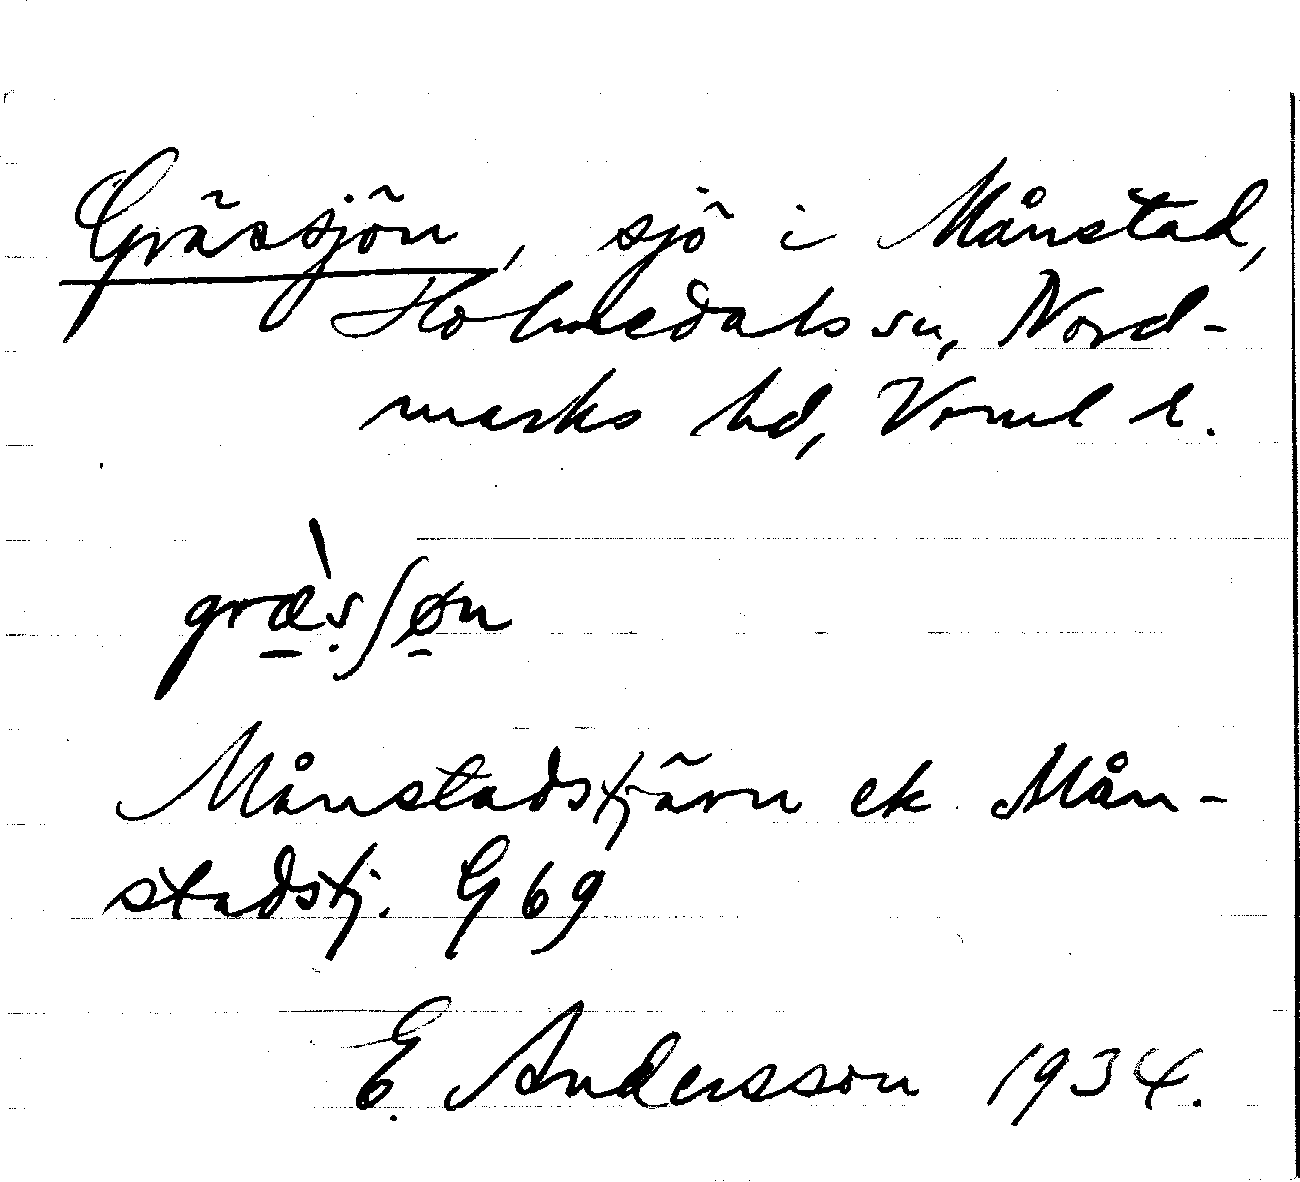 Grässjön, sjö i Månstad,
Holmedals sn, Nord-
marks hd, Vrml l.
græ̀sʃøn
Månstadstjärn ek Mån-
stadstj. G 69
E. Andersson 1934.